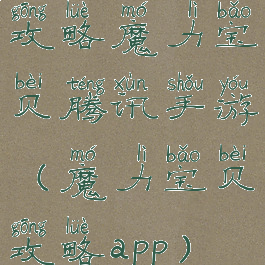 gōng lüè mó lì bǎo
攻略魔力宝
bèi téng xùn shǒu yóu
贝腾讯手游
mó lì bǎo bèi
(魔力宝贝
gōng lüè
攻略app)